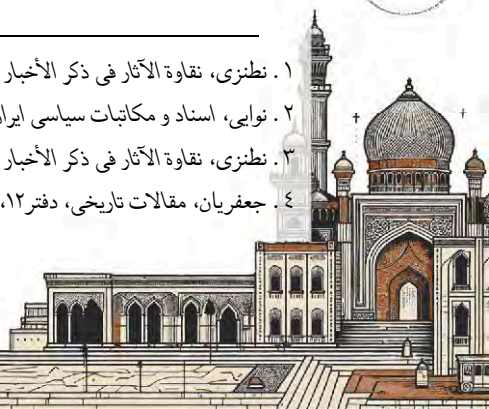 ۱. نطنزی، نقاوة الآثار فی ذکر الأخبار
۲. نوایی، اسناد و مکاتبات سیاسی ایرا
۳. نطنزی، نقاوة الآثار فی ذکر الأخبار
٤. جعفریان، مقالات تاریخی، دفتر۱۲،